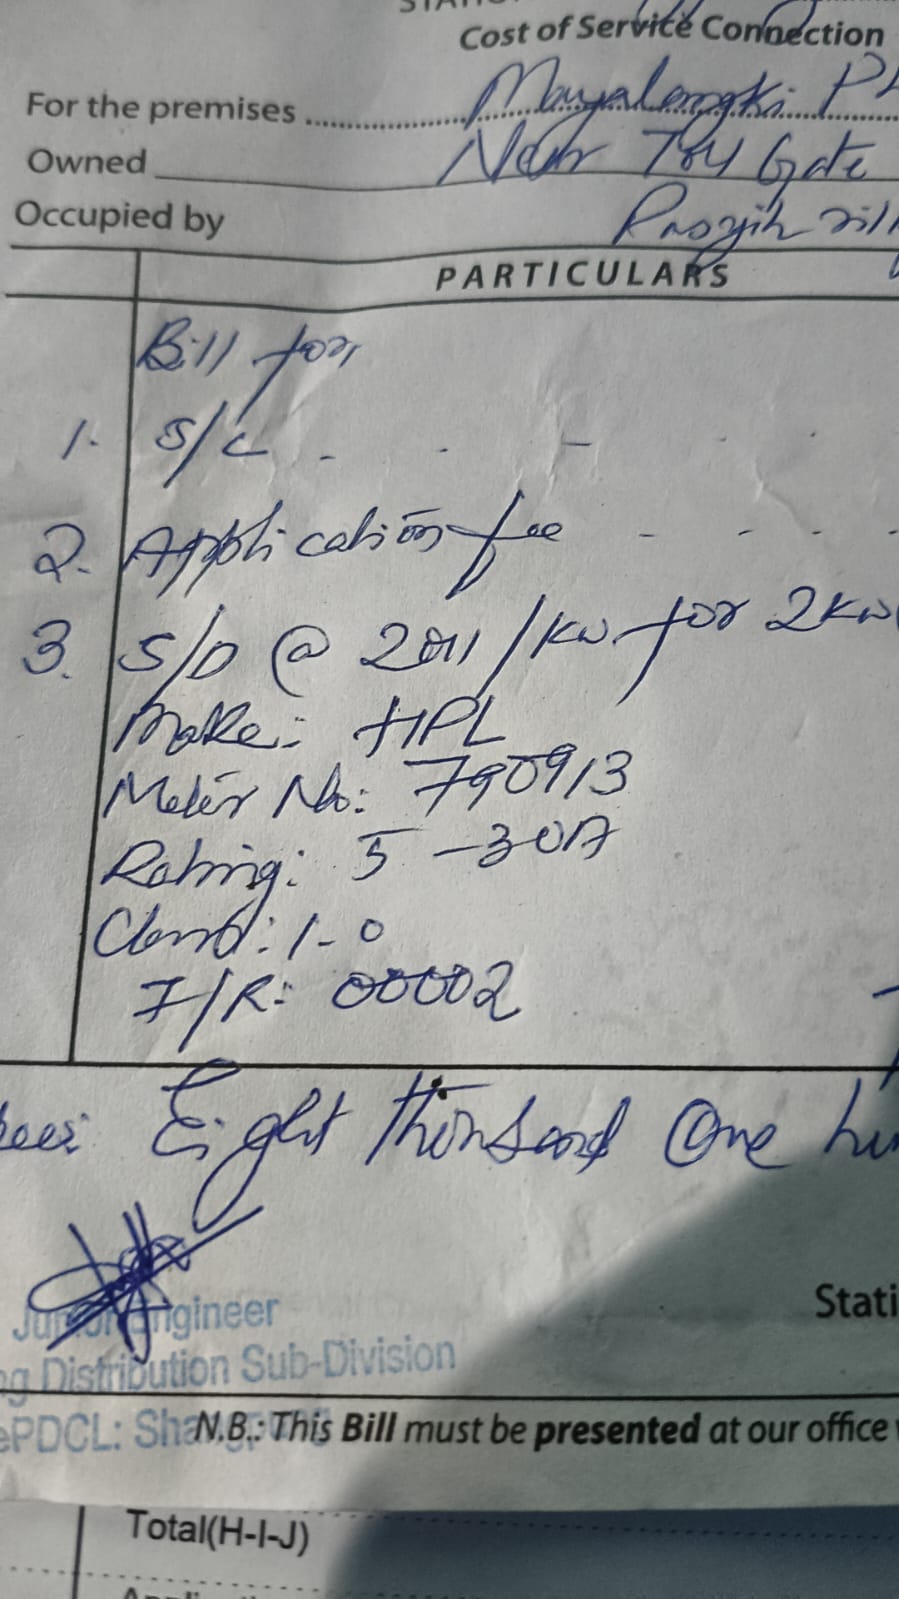 Cost of Service Connection
For the premises
Owned Near Toy Gate
Occupied by
PARTICULARS
Bill for,
1. S/C
2. Application fee
3. S/D @ /KW for 2KW
Make: HPL
Meter No: 790913
Rating: 5-30A
Class: 1-0
I/R: 00002
Eight thousand One
Junior Engineer
Distribution Sub-Division
Stati
ePDCL:
N.B.: This Bill must be presented at our office
Total(H-I-J)